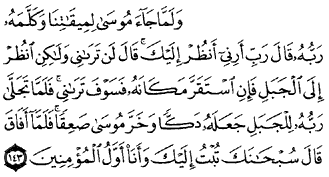 وَلَمَّا جَآءَ مُوسَىٰ لِمِيقَٰتِنَا وَكَلَّمَهُۥ
رَبُّهُۥ قَالَ رَبِّ أَرِنِىٓ أَنظُرْ إِلَيْكَ ۚ قَالَ لَن تَرَىٰنِى وَلَٰكِنِ ٱنظُرْ
إِلَى ٱلْجَبَلِ فَإِنِ ٱسْتَقَرَّ مَكَانَهُۥ فَسَوْفَ تَرَىٰنِى ۚ فَلَمَّا تَجَلَّىٰ
رَبُّهُۥ لِلْجَبَلِ جَعَلَهُۥ دَكًّا وَخَرَّ مُوسَىٰ صَعِقًا ۚ فَلَمَّآ أَفَاقَ
قَالَ سُبْحَٰنَكَ تُبْتُ إِلَيْكَ وَأَنَا۠ أَوَّلُ ٱلْمُؤْمِنِينَ ١٤٣